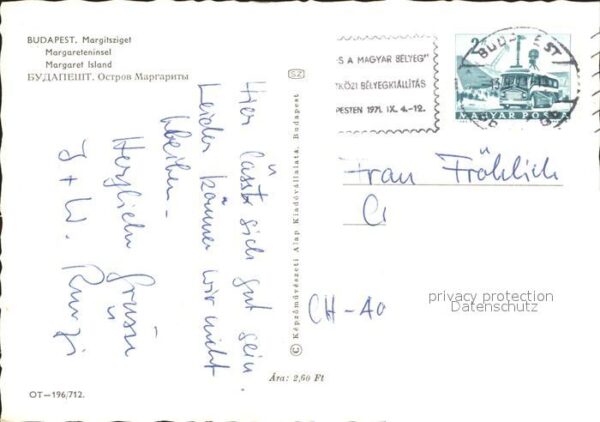 BUDAPEST. Margitsziget
Margareteninsel
Margaret Island
БУДАПЕШТ. Остров Маргариты
SZ
Hier lässt sich gut sein.
Leider können wir nicht
bleiben.
Herzliche Grüsse
J + W.
© Képzőművészeti Alap Kiadóvállalata, Budapest
S A MAGYAR BÉLYEG"
TKÖZI BÉLYEGKIÁLLÍTÁS
PESTEN 1971. IX. 4.-12.
BUDAPEST
2
MAGYAR POSTA
Frau Fröhlich
CH-40
privacy protection
Datenschutz
Ára: 2,60 Ft
OT—196/712.